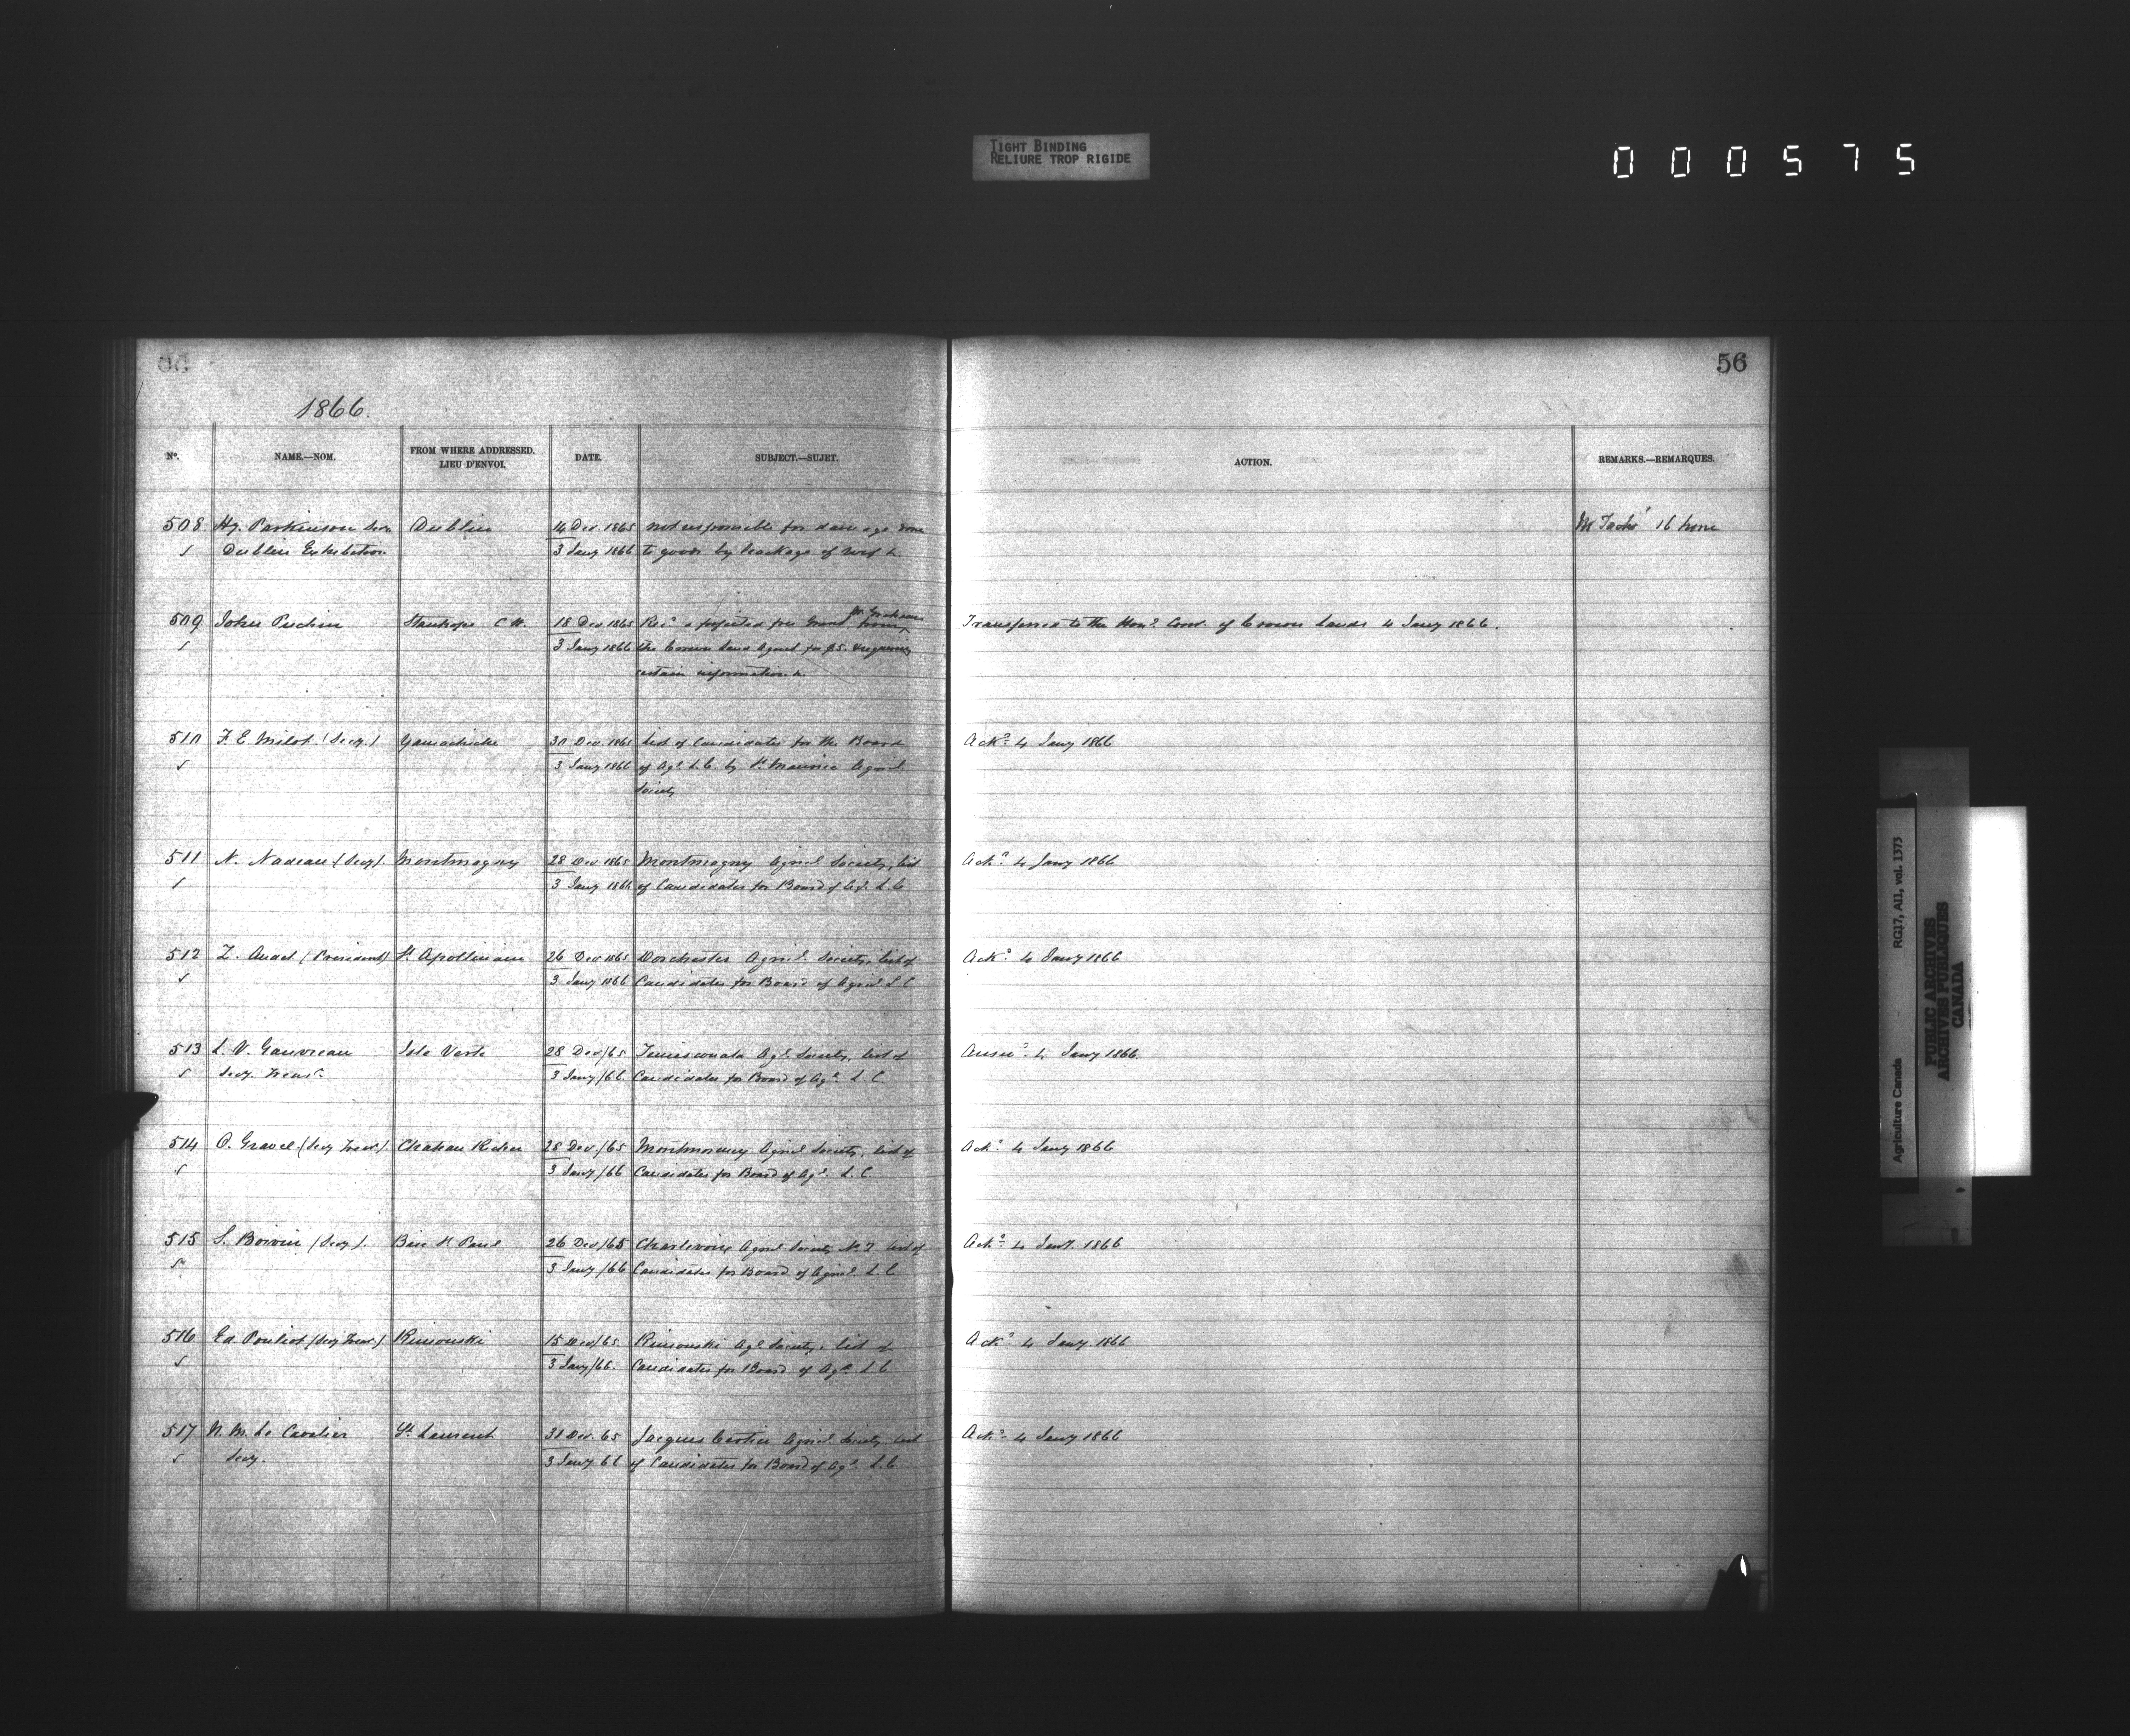 TIGHT BINDING
RELIURE TROP RIGIDE
000575
56
1866.
No. NAME.—NOM. FROM WHERE ADDRESSED. LIEU D'ENVOI. DATE. SUBJECT.—SUJET. ACTION. REMARKS.—REMARQUES.
508 Hy. Parkinson Secy. Dublin 14 Dec. 1865 not responsible for damage done
Dublin Exhibition 3 Jany 1866 to goods by leakage of roof &
509 John Stanhope C.W. 18 Dec 1865 Rec. a free Grant from
3 Jany 1866 the Crown Land Agent for $5. requiring
certain information &.
Transferred to the Hon. Com. of Crown Lands 4 Jany 1866.
510 F. E. Milot (Secy.) Yamachiche 30 Dec. 1865 List of Candidates for the Board
3 Jany 1866 of Agl. L.C. by St. Maurice Agricl.
Society
Ack. 4 Jany 1866
511 N. Nadeau (Secy). Montmagny 28 Dec 1865 Montmagny Agricl. Society, list
3 Jany 1866 of Candidates for Board of Agl. L.C
Ack. 4 Jany 1866
512 Z. Audet (President) St. Apollinaire 26 Dec 1865 Dorchester Agricl. Society, list of
3 Jany 1866 Candidates for Board of Agricl L C
Ack. 4 Jany 1866
513 L. V. Gauvreau Isle Verte 28 Dec/65 Temiscouata Agl. Society, list of
Secy. Treas. 3 Jany/66. Candidates for Board of Agl. L. C
Answ. 4 Jany 1866.
514 O. Gravel (Secy Treas.) Chateau Richer 28 Dec/65 Montmorency Agricl Society, list of
3 Jany/66 Candidates for Board of Agl. L. C.
Ack. 4 Jany 1866
515 S. Boivin (Secy). Baie St Paul 26 Dec/65 Charlevoix Agricl Society No. 2 list of
3 Jany/66 Candidates for Board of Agricl. L. C
Ack. 4 Jany. 1866
516 Ed. Pouliot (Secy Treas.) Rimouski 15 Dec/65 Rimouski Agl. Society, list of
3 Jany/66. Candidates for Board of Agl. L C
Ack. 4 Jany. 1866
517 N. M. Le Cavalier St. Laurent 30 Dec. 65 Jacques Cartier Agricl. Society list
Secy. 3 Jany 66 of Candidates for Board of Agl. L.C
Ack. 4 Jany 1866
Agriculture Canada RG17, AII, vol. 1373
PUBLIC ARCHIVES
ARCHIVES PUBLIQUES
CANADA